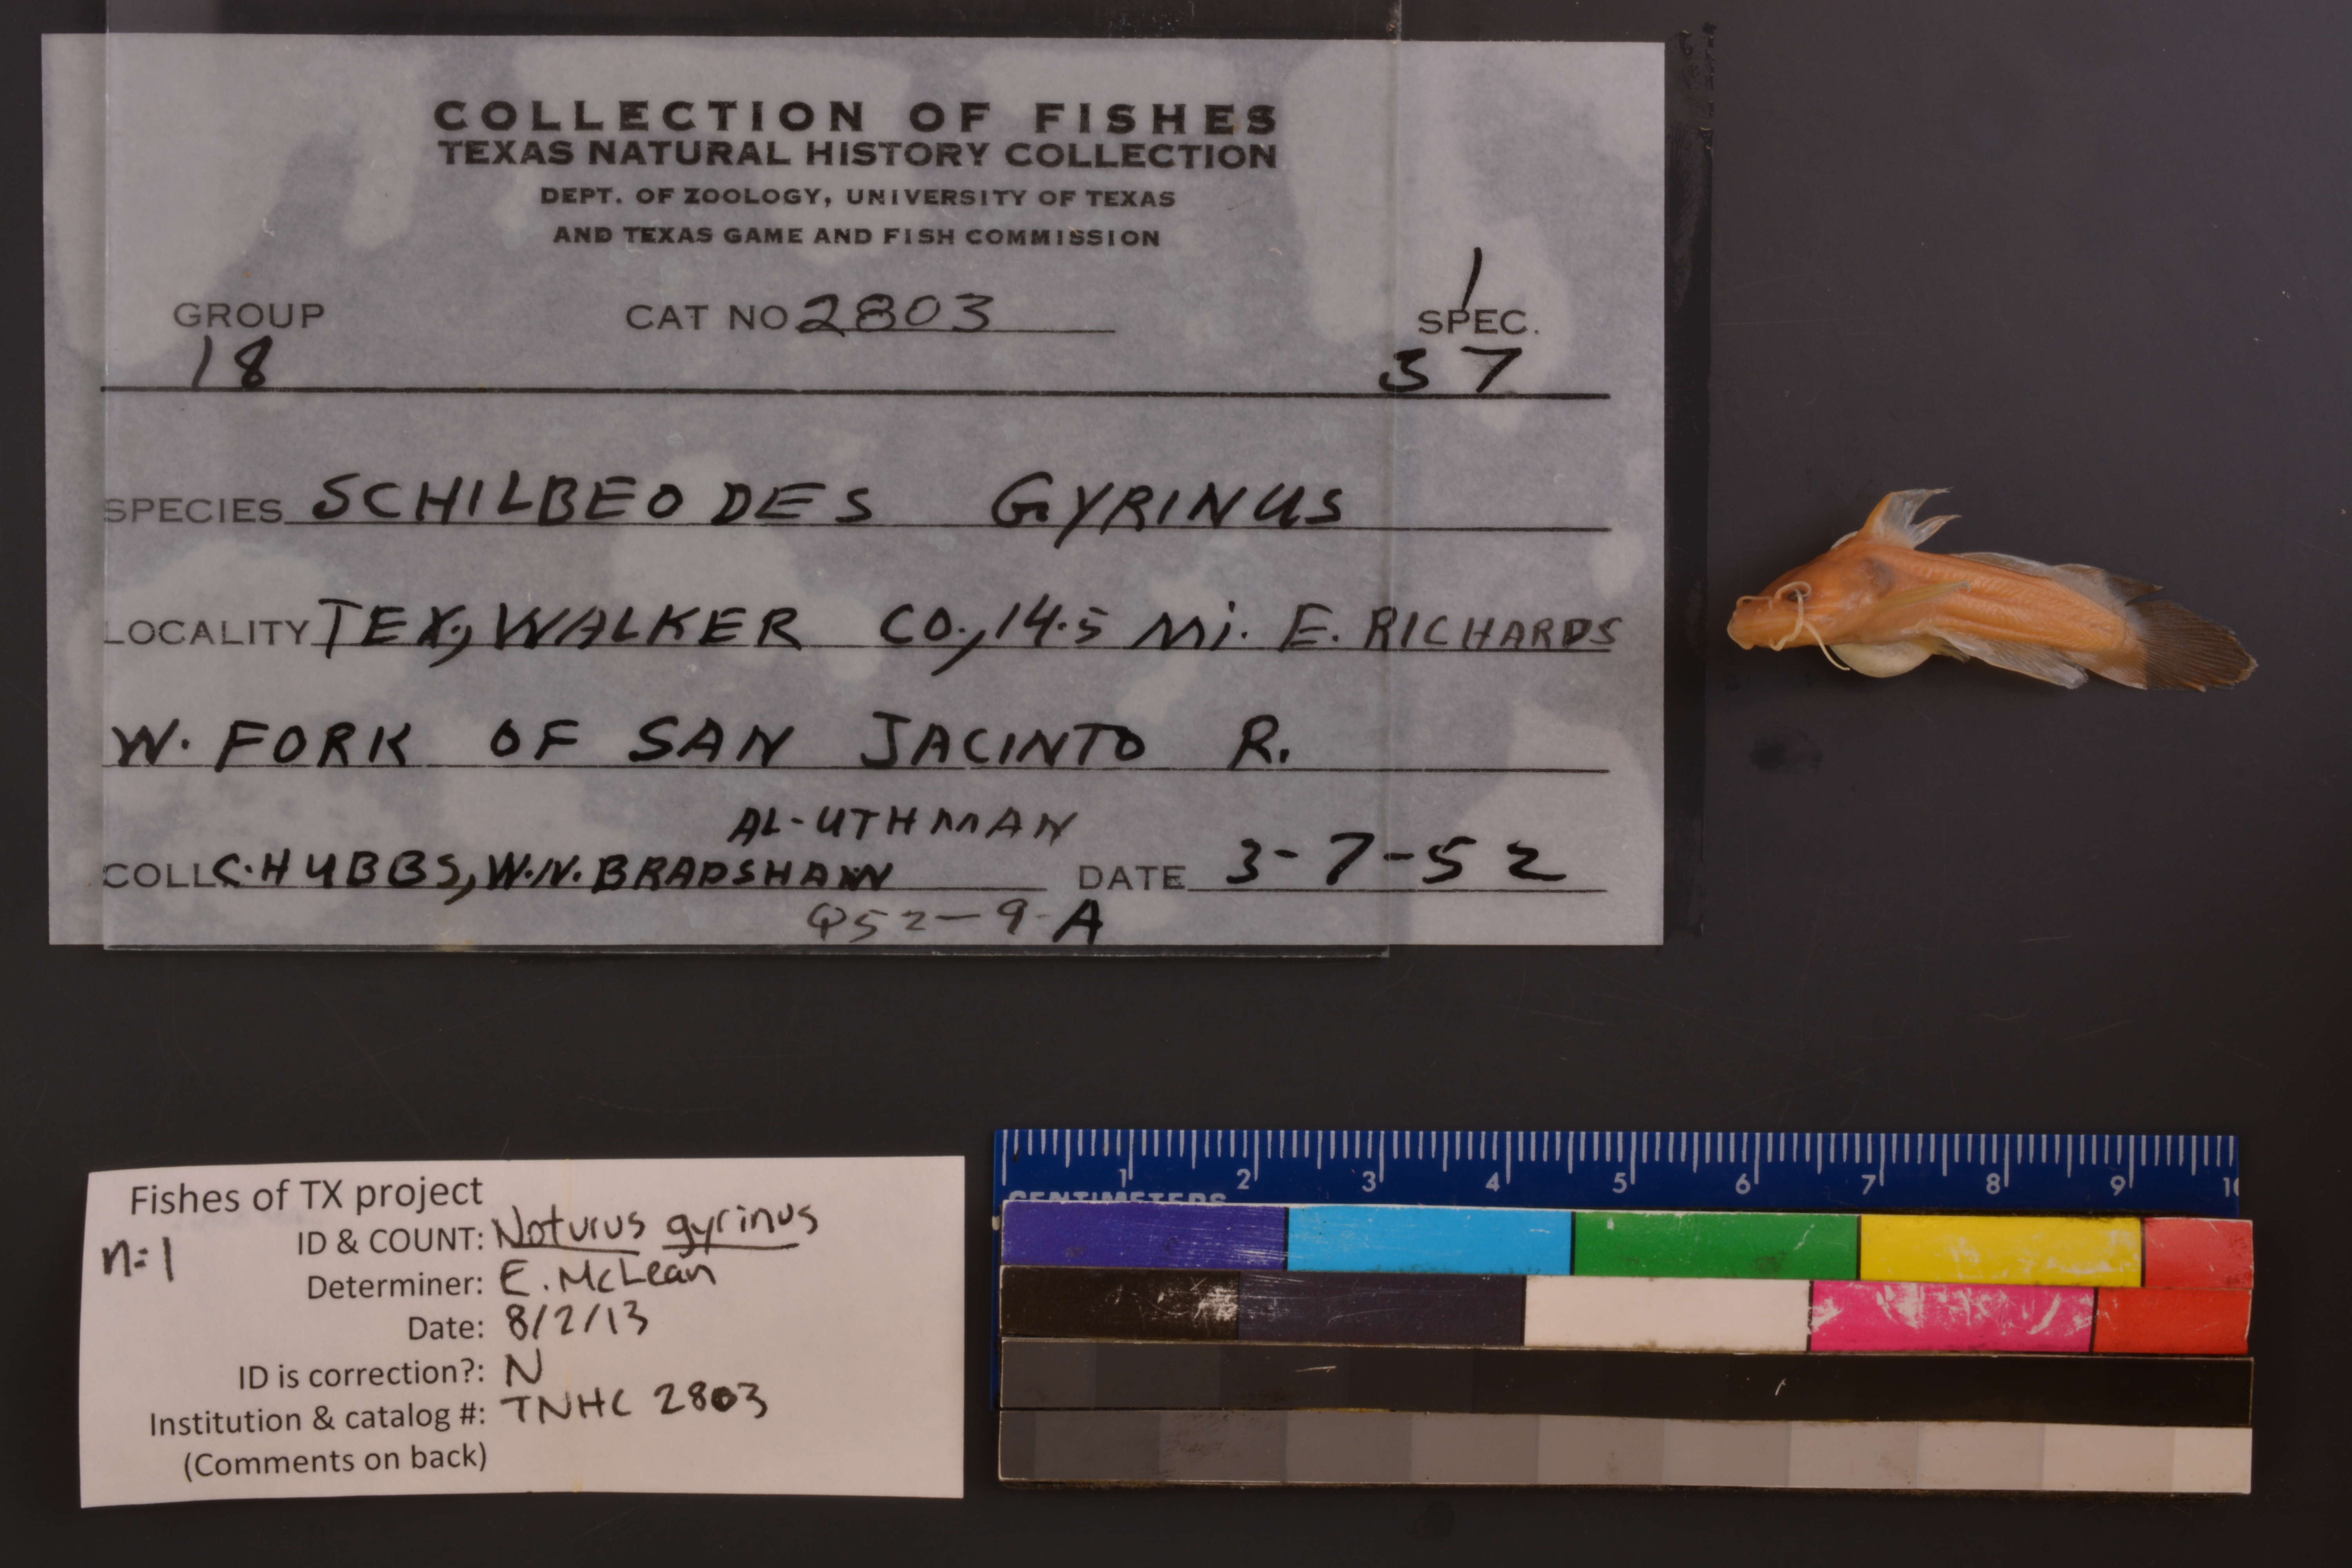 COLLECTION OF FISHES
TEXAS NATURAL HISTORY COLLECTION
DEPT. OF ZOOLOGY, UNIVERSITY OF TEXAS
AND TEXAS GAME AND FISH COMMISSION
1
GROUP CAT NO 2803 SPEC.
18 37
SPECIES SCHILBEODES GYRINUS
LOCALITY TEX., WALKER CO., 14.5 Mi. E. RICHARDS
W. FORK OF SAN JACINTO R.
AL-UTHMAN
COLL C. HUBBS, W.N. BRADSHAW DATE 3-7-52
Q52-9-A
Fishes of TX project
ID & COUNT: Noturus gyrinus
n=1
Determiner: E. McLean
Date: 8/2/13
ID is correction?: N
Institution & catalog #: TNHC 2803
(Comments on back)
1 2 3 4 5 6 7 8 9 10
CENTIMETERS